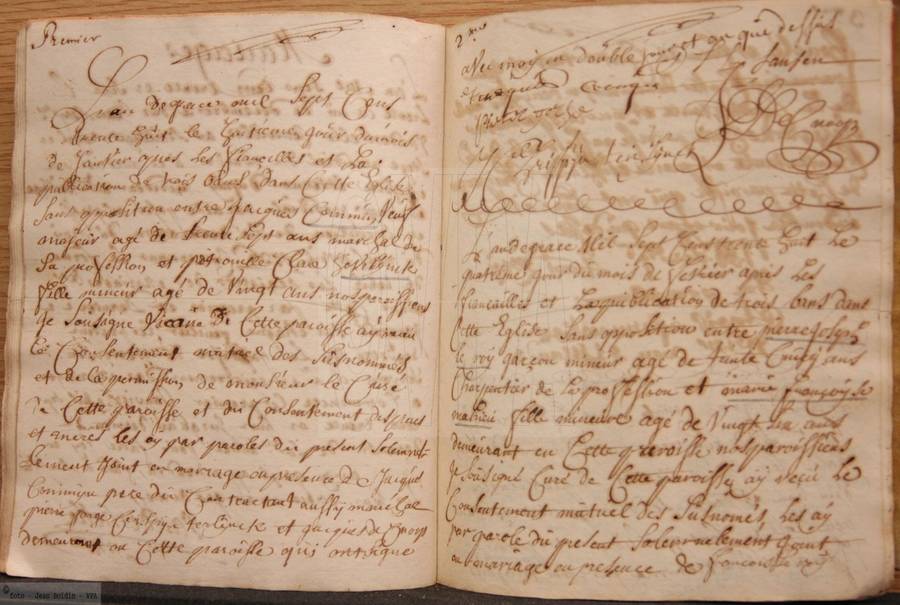 Premier
L'an de grace mil Sept Cens
trente huit le huitieme jour du mois
de Janvier apres les fiancailles et La
publication de trois bans dans Cette Eglise
sans opposition entre jacques
majeur agé de trente sept ans marchal de
sa profession et petronille Clare
fille mineur agé de Vingt ans nos paroissiens
je Sousigné Vicaire De Cette paroisse ayant
Le Consentement mutuel des Susnommés
et de la permission de monsieur le Curé
de Cette paroisse et du Consentement des peres
et meres les ay par paroles du present Solemnel-
lement Joint en mariage en presence de Jacques
pere du Contractant aussy marchal
pierre jorge et jacques de
demeurant en Cette paroisse qui ont signé
2
avec moy en double jour et an que dessus
Jansen
L'an de grace Mil Sept Cens trente huit le
quatrieme jour du mois de fevrier apres les
fiancailles et La publication de trois bans dans
Cette Eglise sans opposition entre pierre joseph
le roy garçon mineur agé de ans
Charpentier de sa profession et marie françoise
mathieu fille mineure agé de Vingt six ans
demeurant en Cette paroisse nos paroissiens
je sousigné Curé de Cette paroisse ay reçu Le
Consentement mutuel des Susnomés Les ay
par parole du present Solemnellement Joint
en mariage en presence de francois le roy
© foto - Jean Boidin - VVA